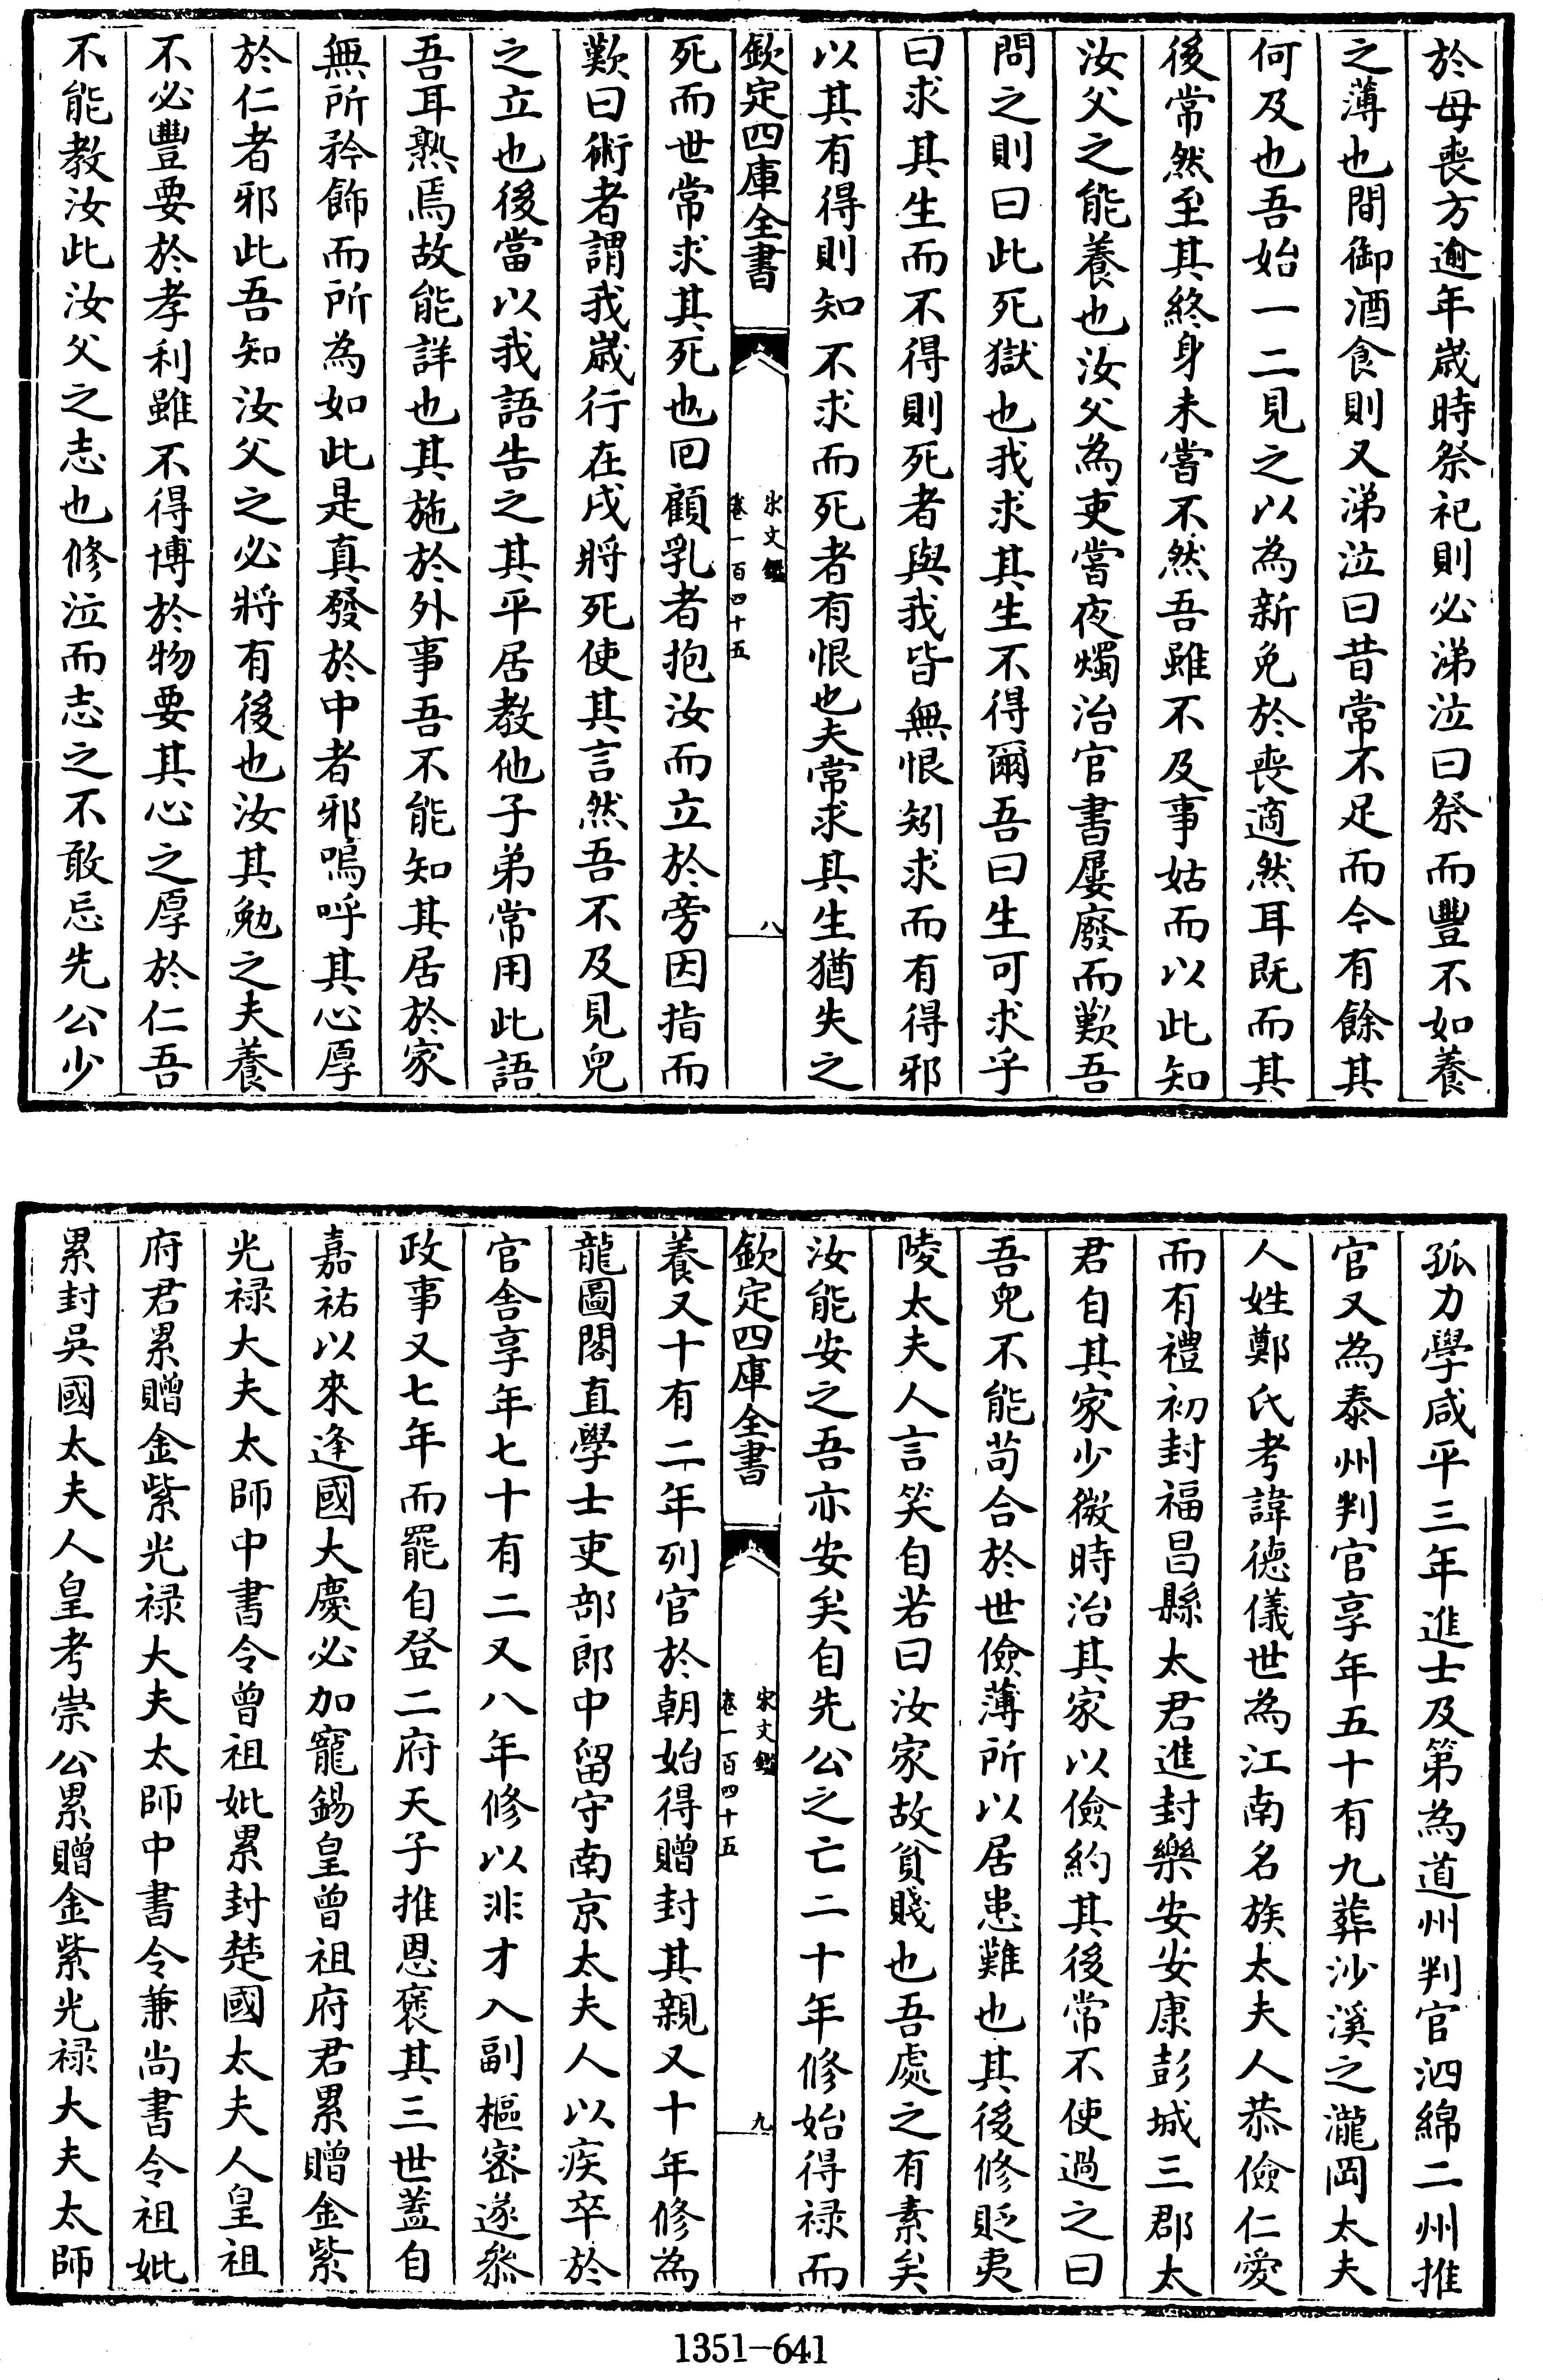 於母喪方逾年歲時祭祀則必涕泣曰祭而豐不如養
之薄也間御酒食則又涕泣曰昔常不足而今有餘其
何及也吾始一二見之以為新免於喪適然耳既而其
後常然至其終身未嘗不然吾雖不及事姑而以此知
汝父之能養也汝父為吏嘗夜燭治官書屢廢而歎吾
問之則曰此死獄也我求其生不得爾吾曰生可求乎
曰求其生而不得則死者與我皆無恨矧求而有得邪
以其有得則知不求而死者有恨也夫常求其生猶失之
欽定四庫全書
宋文鑑
卷一百四十五
八
死而世常求其死也回顧乳者抱汝而立於旁因指而
歎曰術者謂我歲行在戌將死使其言然吾不及見兒
之立也後當以我語告之其平居教他子弟常用此語
吾耳熟焉故能詳也其施於外事吾不能知其居於家
無所矜飾而所為如此是真發於中者邪嗚呼其心厚
於仁者邪此吾知汝父之必將有後也汝其勉之夫養
不必豐要於孝利雖不得博於物要其心之厚於仁吾
不能教汝此汝父之志也修泣而志之不敢忘先公少
孤力學咸平三年進士及第為道州判官泗綿二州推
官又為泰州判官享年五十有九葬沙溪之瀧岡太夫
人姓鄭氏考諱德儀世為江南名族太夫人恭儉仁愛
而有禮初封福昌縣太君進封樂安安康彭城三郡太
君自其家少微時治其家以儉約其後常不使過之曰
吾兒不能苟合於世儉薄所以居患難也其後修貶夷
陵太夫人言笑自若曰汝家故貧賤也吾處之有素矣
汝能安之吾亦安矣自先公之亡二十年修始得祿而
欽定四庫全書
宋文鑑
卷一百四十五
九
養又十有二年列官於朝始得贈封其親又十年修為
龍圖閣直學士吏部郎中留守南京太夫人以疾卒於
官舍享年七十有二又八年修以非才入副樞密遂叅
政事又七年而罷自登二府天子推恩褒其三世蓋自
嘉祐以來逢國大慶必加寵錫皇曾祖府君累贈金紫
光祿大夫太師中書令曾祖妣累封楚國太夫人皇祖
府君累贈金紫光祿大夫太師中書令兼尚書令祖妣
累封吳國太夫人皇考崇公累贈金紫光祿大夫太師
1351-641